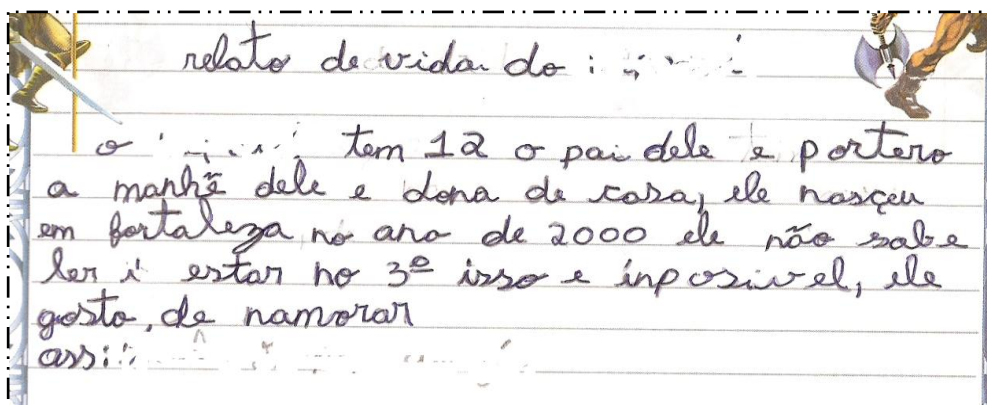 relato de vida do
o tem 12 o pai dele e portero
a manhẽ dele e dona de casa, ele nasçeu
em fortaleza no ano de 2000 ele não sabe
ler i estar no 3º isso e inposivel, ele
gosto, de namorar
assi